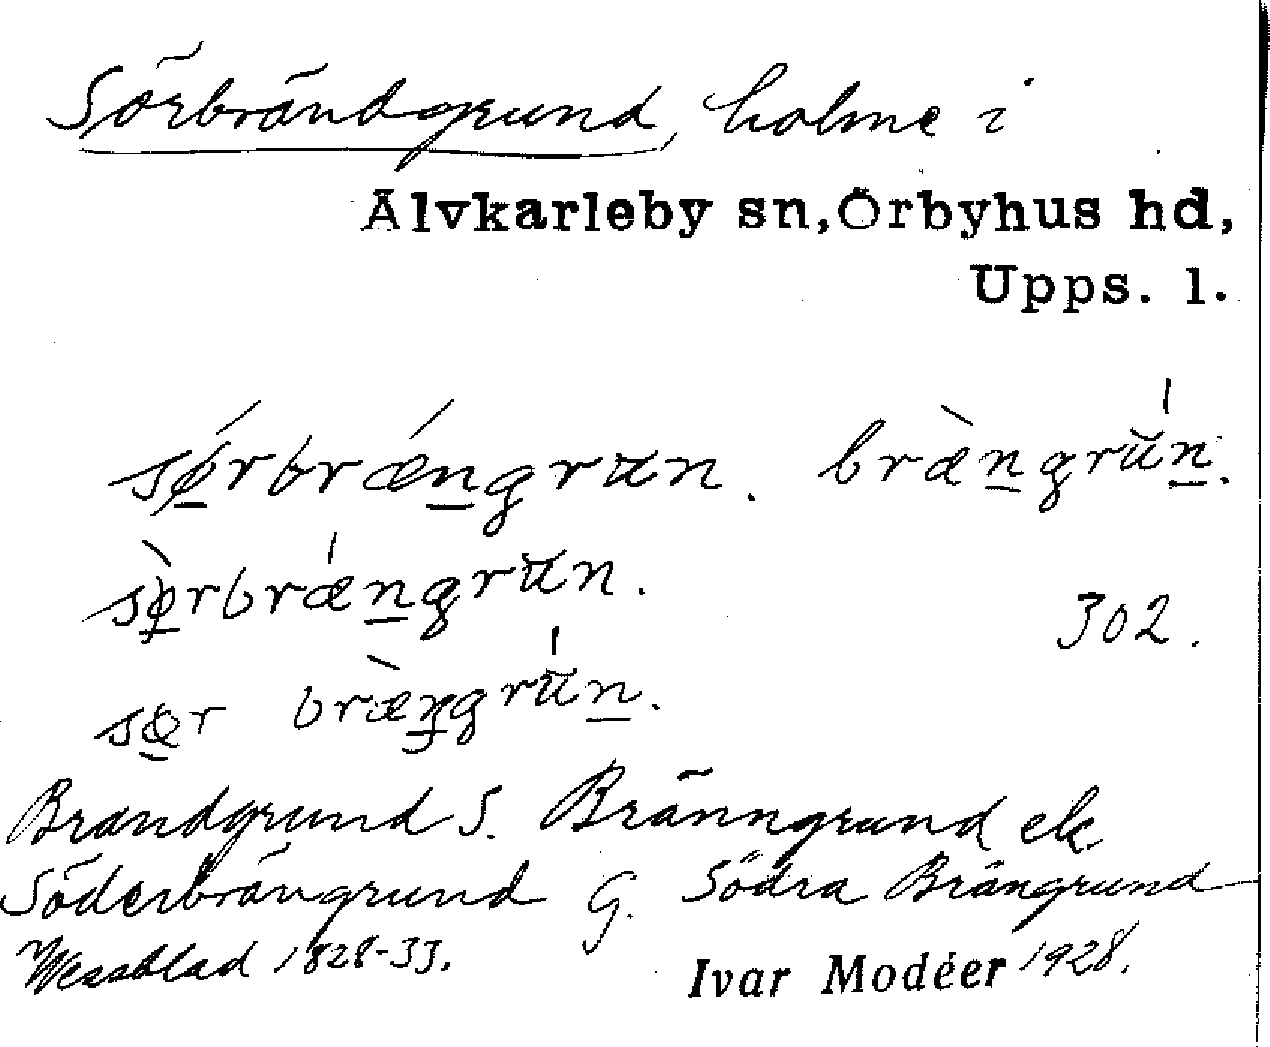 Sörbrändgrund, holme i
Älvkarleby sn, Örbyhus hd,
Upps. l.
sǿ̱rbrǽṉgrun. bræ̀ṉgrŭ́ṉ.
sø̱̀rbrǽṉgrŭn.
302.
sø̱r bræ̀ṉgrŭ́ṉ.
Brandgrund S. Bränngrund ek.
Söderbrängrund G. Södra Brängrund
Wessblad 1828-33. Ivar Modéer 1928.